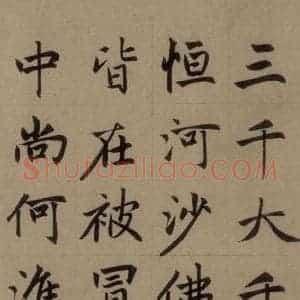 三千大千
恒河沙佛
皆在被冒
中尚何
shufaziliao.com